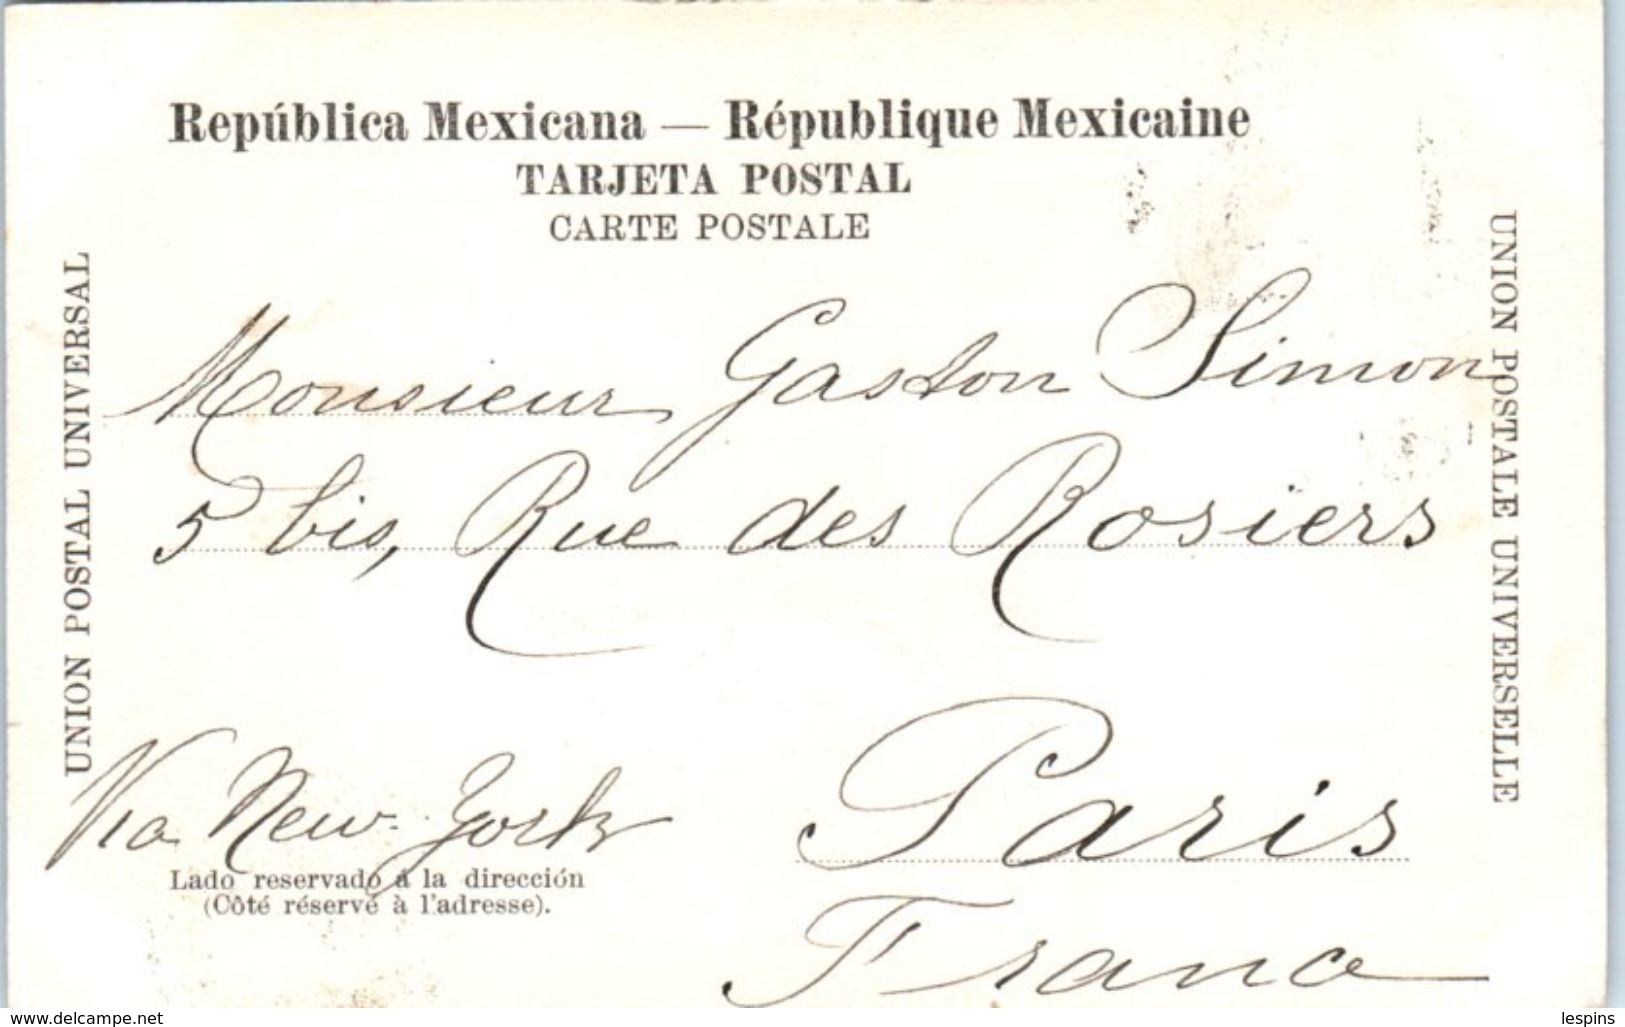 República Mexicana — République Mexicaine
TARJETA POSTAL
CARTE POSTALE
UNION POSTAL UNIVERSAL
UNION POSTALE UNIVERSELLE
Monsieur Gaston Simon
5 bis, Rue des Rosiers
Paris
Via New-York
Lado reservado á la dirección
(Côté réservé à l'adresse).
www.delcampe.net
lespins